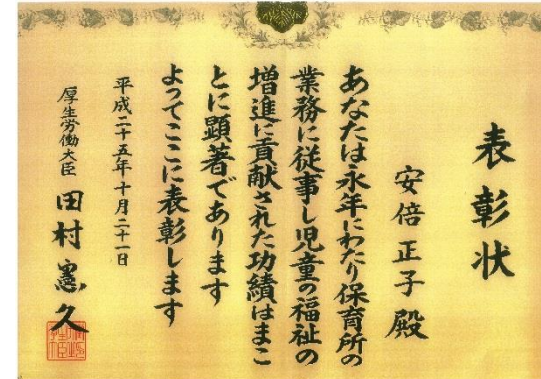 表彰状
安倍正子殿
あなたは永年にわたり保育所の
業務に従事し児童の福祉の
増進に貢献された功績はまこ
とに顕著であります
よってここに表彰します
平成二十五年十月二十一日
厚生労働大臣 田村憲久